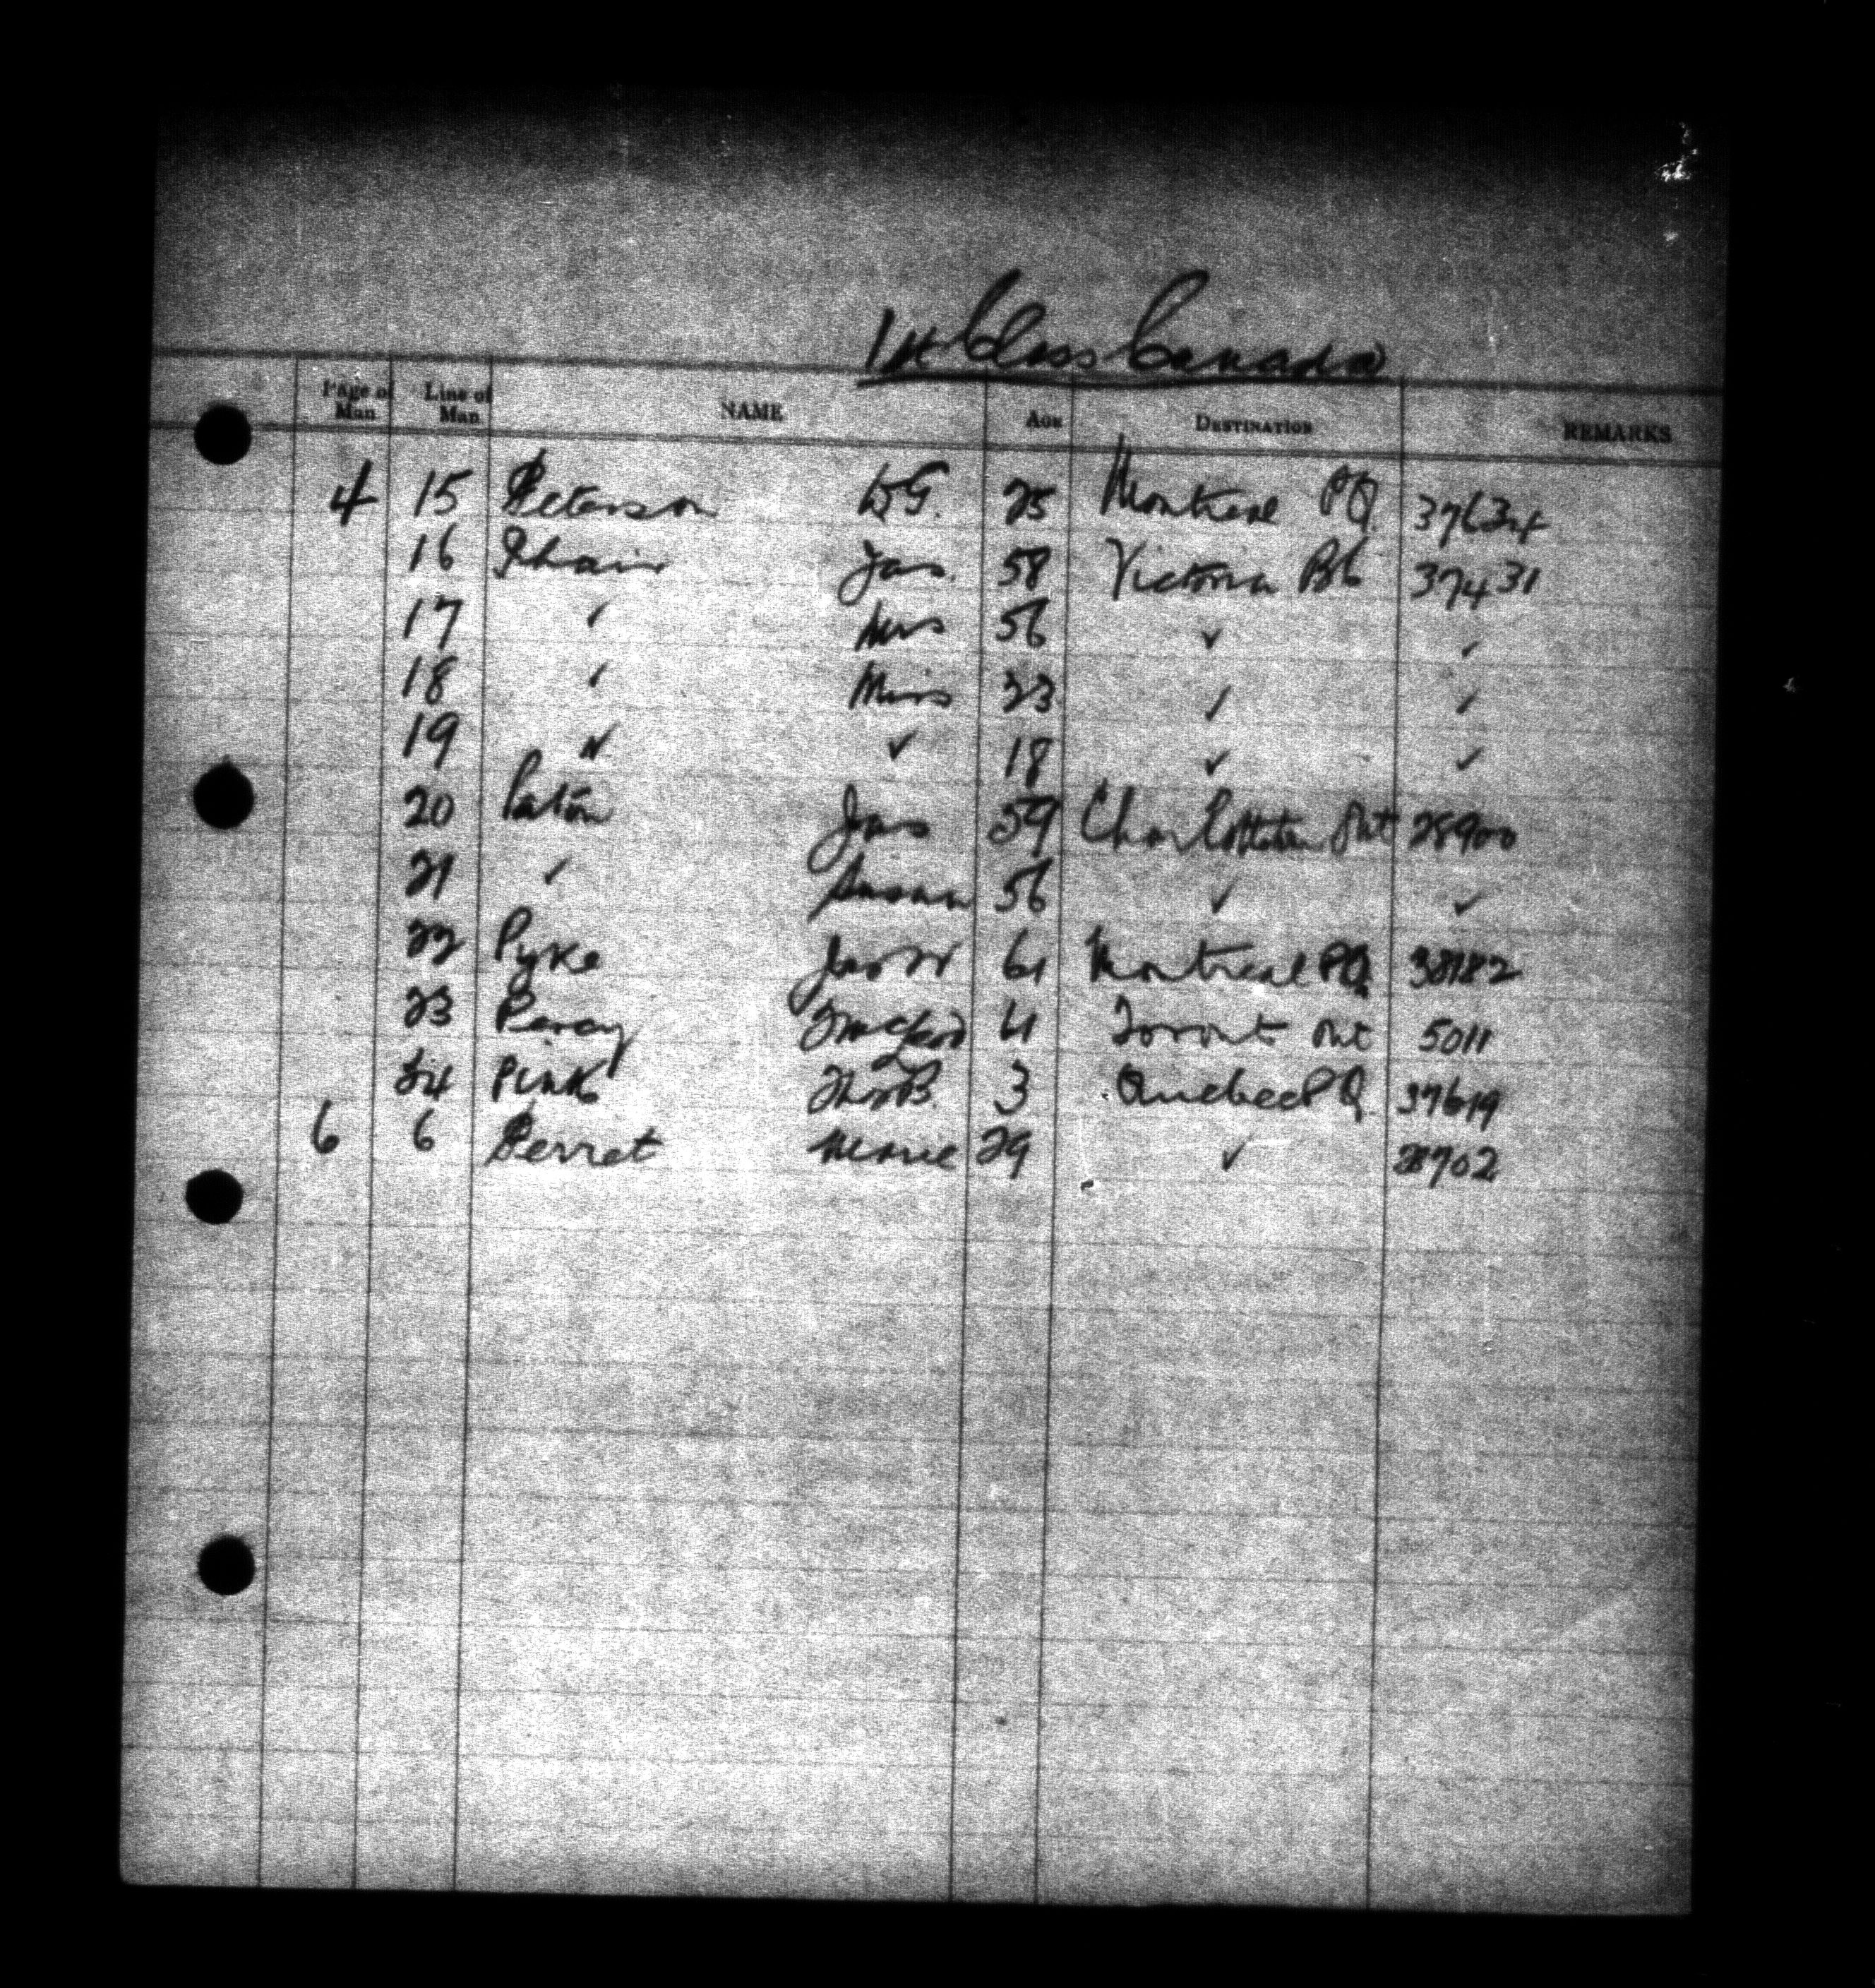 1st Class Canada
Page of Man Line of Man NAME AGE DESTINATION REMARKS
4 15 Peterson W.G. 25 Montreal PQ. 37634
16 Phair Jas. 58 Victoria BC 37431
17 " Mrs 56 " "
18 " Miss 23 " "
19 " " 18 " "
20 Paton Jas 59 Ont 28900
21 " Susan 56 " "
22 Pyke Jas W 61 Montreal PQ 38182
23 Percy 41 Toronto Ont 5011
24 Pink Thos B. 3 Quebec PQ. 37619
6 6 Perret Marie 29 " 28702